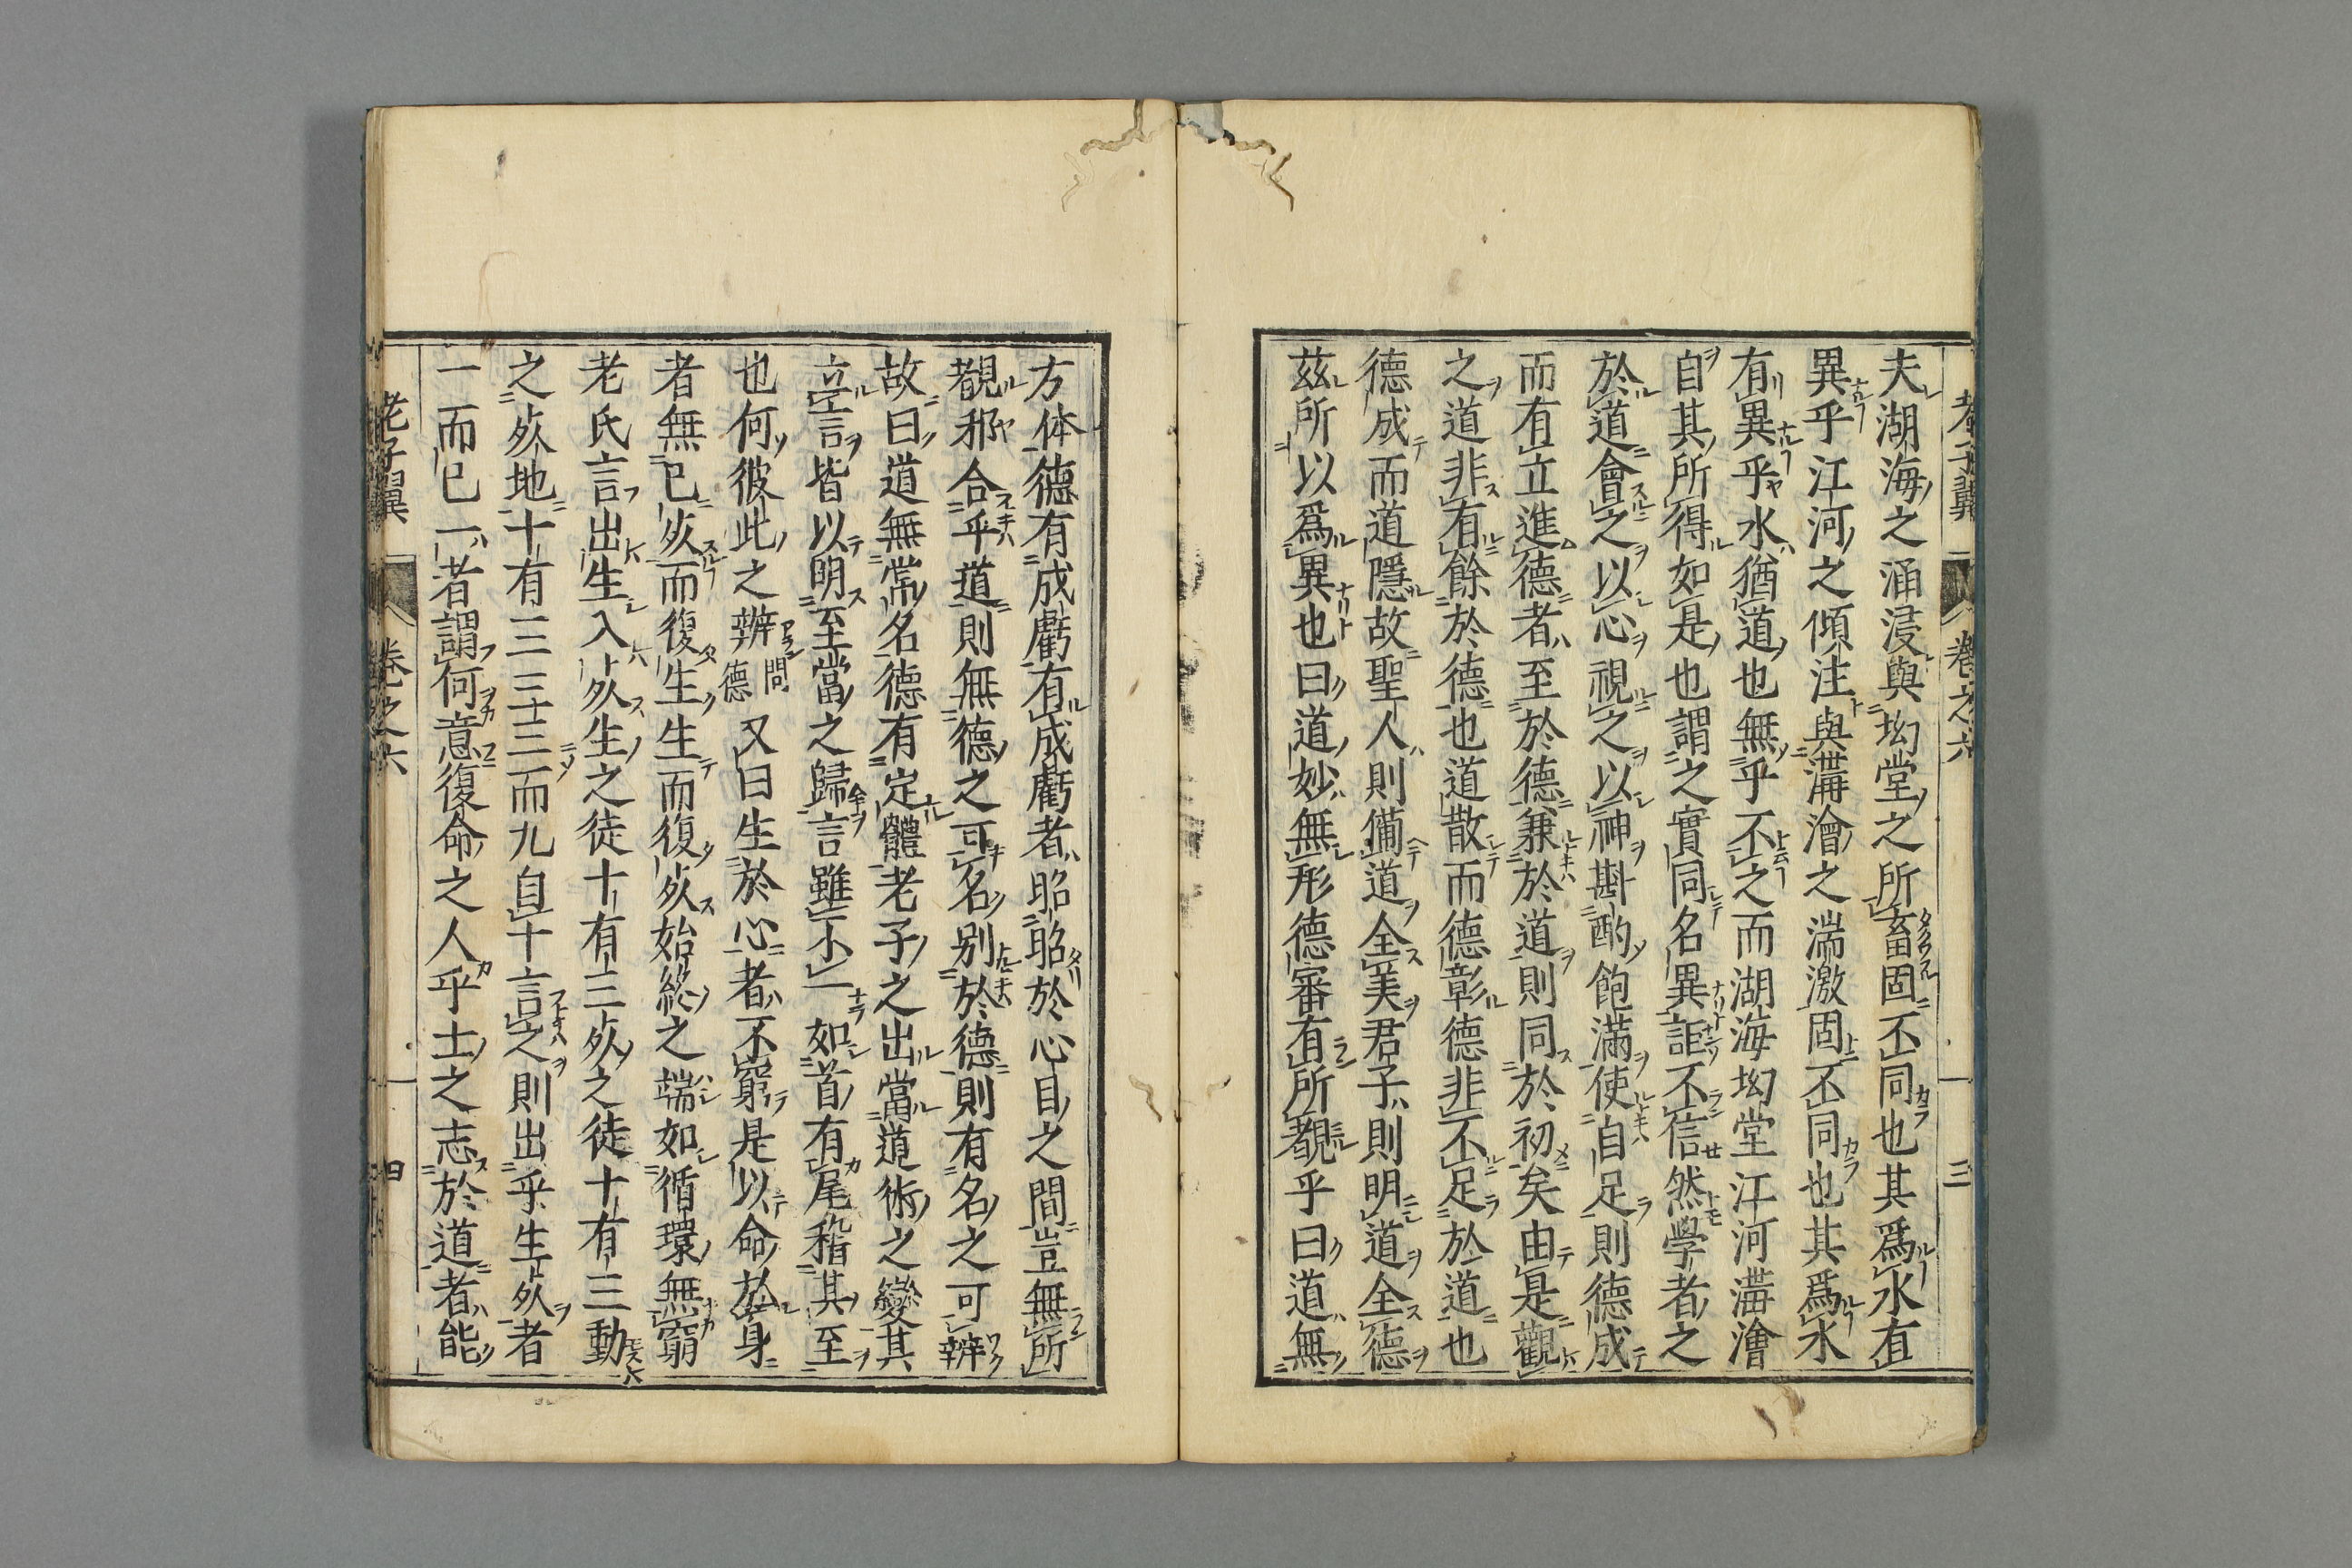 老子翼 卷之六 三
夫湖海之涌浸與坳堂之所畜固不同也其爲水有
異乎江河之傾注與溝澮之湍激固不同也其爲水
有異乎水猶道也無乎不之而湖海坳堂江河溝澮
自其所得如是也謂之實同名異詎不信然學者之
於道會之以心視之以神斟酌飽滿使自足則德成
而有立進德者至於德兼於道則同於初矣由是觀
之道非有餘於德也道散而德彰德非不足於道也
德成而道隱故聖人則備道全美君子則明道全德
茲所以爲異也曰道妙無形德審有所覩乎曰道無
方体德有成虧有成虧者昭昭於心目之間豈無所
覩邪合乎道則無德之可名别於德則有名之可辨
故曰道無常名德有定體老子之出當道術之變其
立言皆以明至當之歸言雖不一如首有尾稽其至
也何彼此之辨問德又曰生於心者不窮是以命於身
者無已㱙而復生生而復㱙始終之端如循環無窮
老氏言出生入㱙生之徒十有三㱙之徒十有三動
之㱙地十有三三十三而九自十言之則出乎生㱙者
一而已一者謂何意復命之人乎士之志於道者能
老子翼 卷之六 四